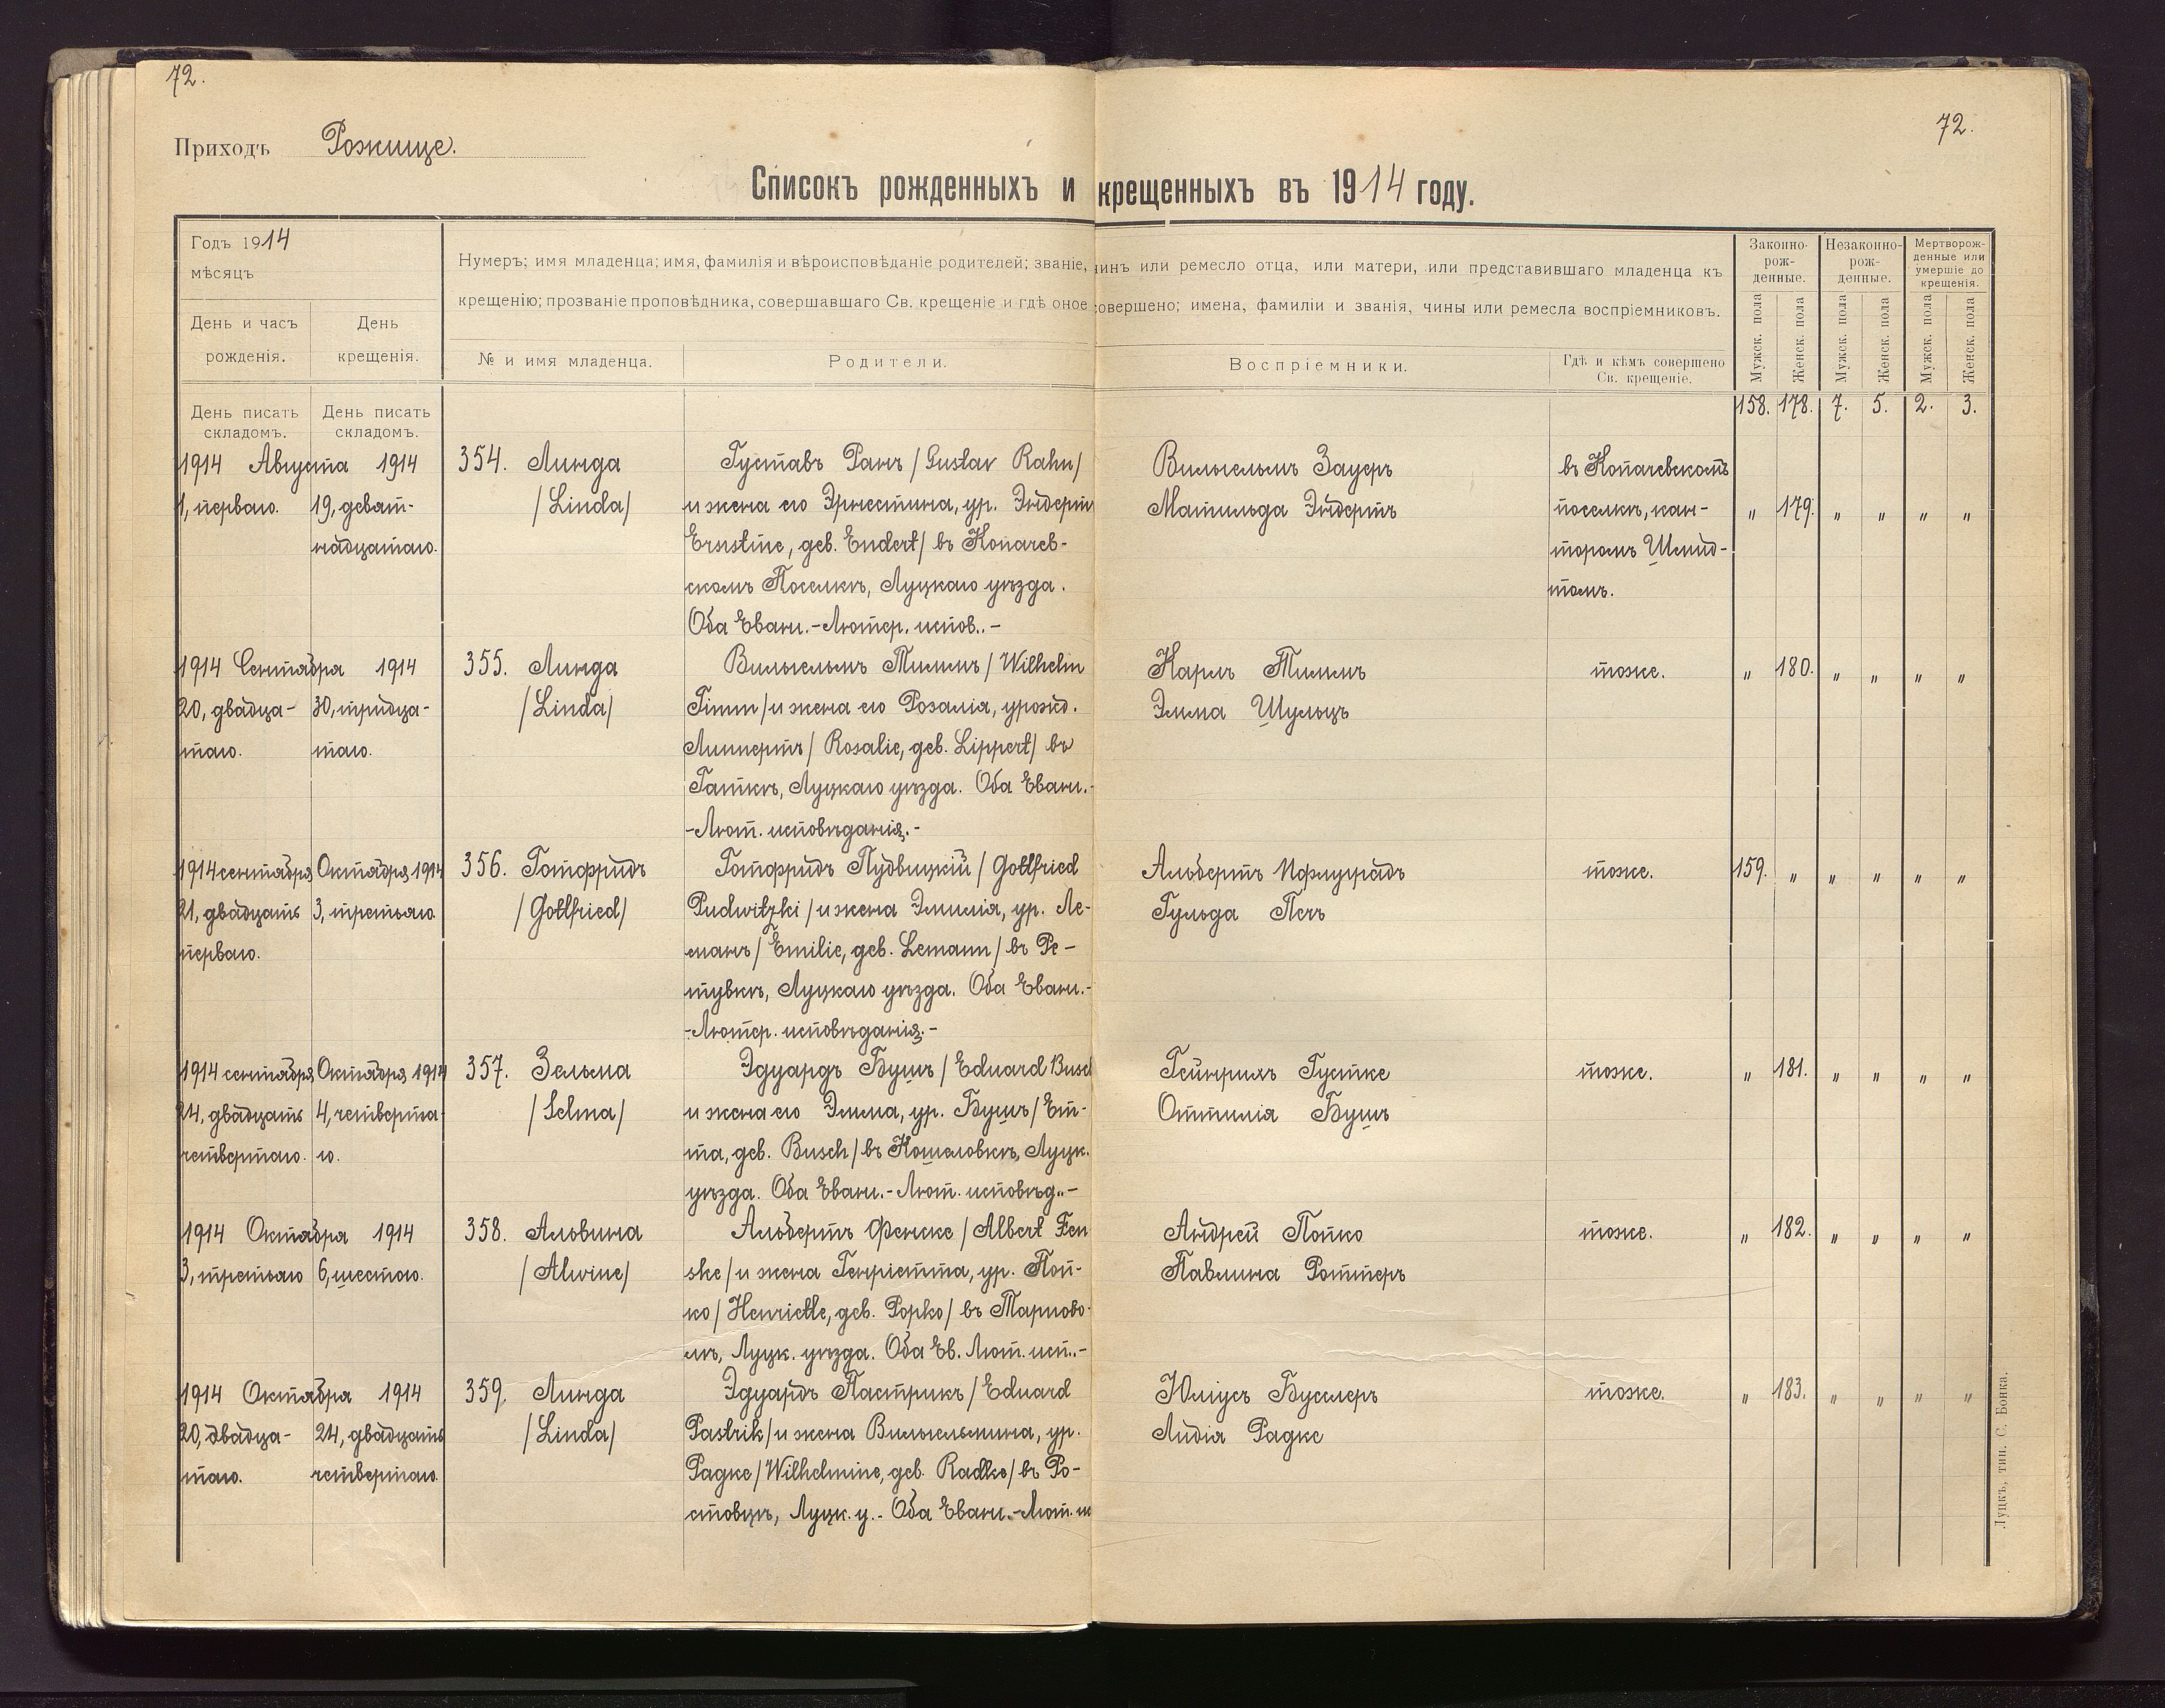 72.
72.
Приходъ Рожище.
Списокъ рожденныхъ и крещенныхъ въ 1914 году.
Годъ 1914
мѣсяцъ
День и часъ рожденія.
День крещенія.
Нумеръ; имя младенца; имя, фамилія и вѣроисповѣданіе родителей; званіе, чинъ или ремесло отца, или матери, или представившаго младенца къ
крещенію; прозваніе проповѣдника, совершавшаго Св. крещеніе и гдѣ оное совершено; имена, фамиліи и званія, чины или ремесла воспріемниковъ.
№ и имя младенца.
Родители.
Воспріемники.
Гдѣ и кѣмъ совершено
Св. крещеніе.
Законно-
рож-
денные.
Незаконно-
рож-
денные.
Мертворож-
денные или
умершіе до
крещенія.
Мужск. пола
Женск. пола
Мужск. пола
Женск. пола
Мужск. пола
Женск. пола
День писать
складомъ.
День писать
складомъ.
158. 178. 7. 5. 2. 3.
1914 Августа 1914
1, перваго.
19, девят-
надцатаго.
354. Линда
/Linda/
Густавъ Ранъ /Gustav Rahn/
и жена его Эрнестина, ур. Эндертъ
Ernstine, geb. Endert/ въ Копачев-
скомъ Поселкѣ, Луцкаго уѣзда.
Оба Еванг.-Лютер. испов..-
Вильгельмъ Зауеръ
Матильда Эндертъ
въ Копачевскомъ
поселкѣ, кан-
торомъ Шмид-
томъ.
" 179. " " " "
1914 Сентября 1914
20, двадца-
таго.
30, тридца-
таго.
355. Линда
/Linda/
Вильгельмъ Тиммъ /Wilhelm
Timm/ и жена его Розалія, урожд.
Липпертъ /Rosalie, geb. Lippert/ въ
Гаткѣ, Луцкаго уѣзда. Оба Еванг.-
-Лют. исповѣданія.-
Карлъ Тиммъ
Эмма Шульцъ
тоже.
" 180. " " " "
1914 сентября
21, двадцать
перваго.
Октября 1914
3, третьяго
356. Готфридъ
/Gottfried/
Готфридъ Пудвицкій /Gottfried
Pudwitzki/ и жена Эмилія, ур. Ле-
манъ /Emilie, geb. Lemann/ въ Ре-
тувкѣ, Луцкаго уѣзда. Оба Еванг.-
-Лютер. исповѣданія.-
Альбертъ Пфлуградъ
Гульда Печъ
тоже.
159. " " " " "
1914 сентября
24, двадцать
четвертаго.
Октября 1914
4, четверта-
го.
357. Зельма
/Selma/
Эдуардъ Бушъ /Eduard Busch
и жена его Эмма, ур. Бушъ /Em-
ma, geb. Busch/ въ Кошеловкѣ, Луцк.
уѣзда. Оба Еванг.-Лют. исповѣд..-
Гейнрихъ Густке
Оттилія Бушъ
тоже.
" 181. " " " "
1914 Октября 1914
3, третьяго
6, шестого.
358. Альвина
/Alwine/
Альбертъ Фенске /Albert Fen
ske/ и жена Генріетта, ур. Поп-
ко /Henriette, geb. Popko/ въ Тарново-
лѣ, Луцк. уѣзда. Оба Ев. Лют. исп..-
Андрей Попко
Павлина Роттеръ
тоже.
" 182. " " " "
1914 Октября 1914
20, двадца-
таго.
24, двадцать
четвертаго.
359. Линда
/Linda/
Эдуардъ Пастрикъ /Eduard
Pastrik/ и жена Вильгельмина, ур.
Радке /Wilhelmine, geb. Radke/ въ Ро-
стовцѣ, Луцк. у.- Оба Еванг.-Лют. и
Юліусъ Бусслеръ
Лидія Радке
тоже.
" 183. " " " "
Луцкъ, тип. С. Бонка.